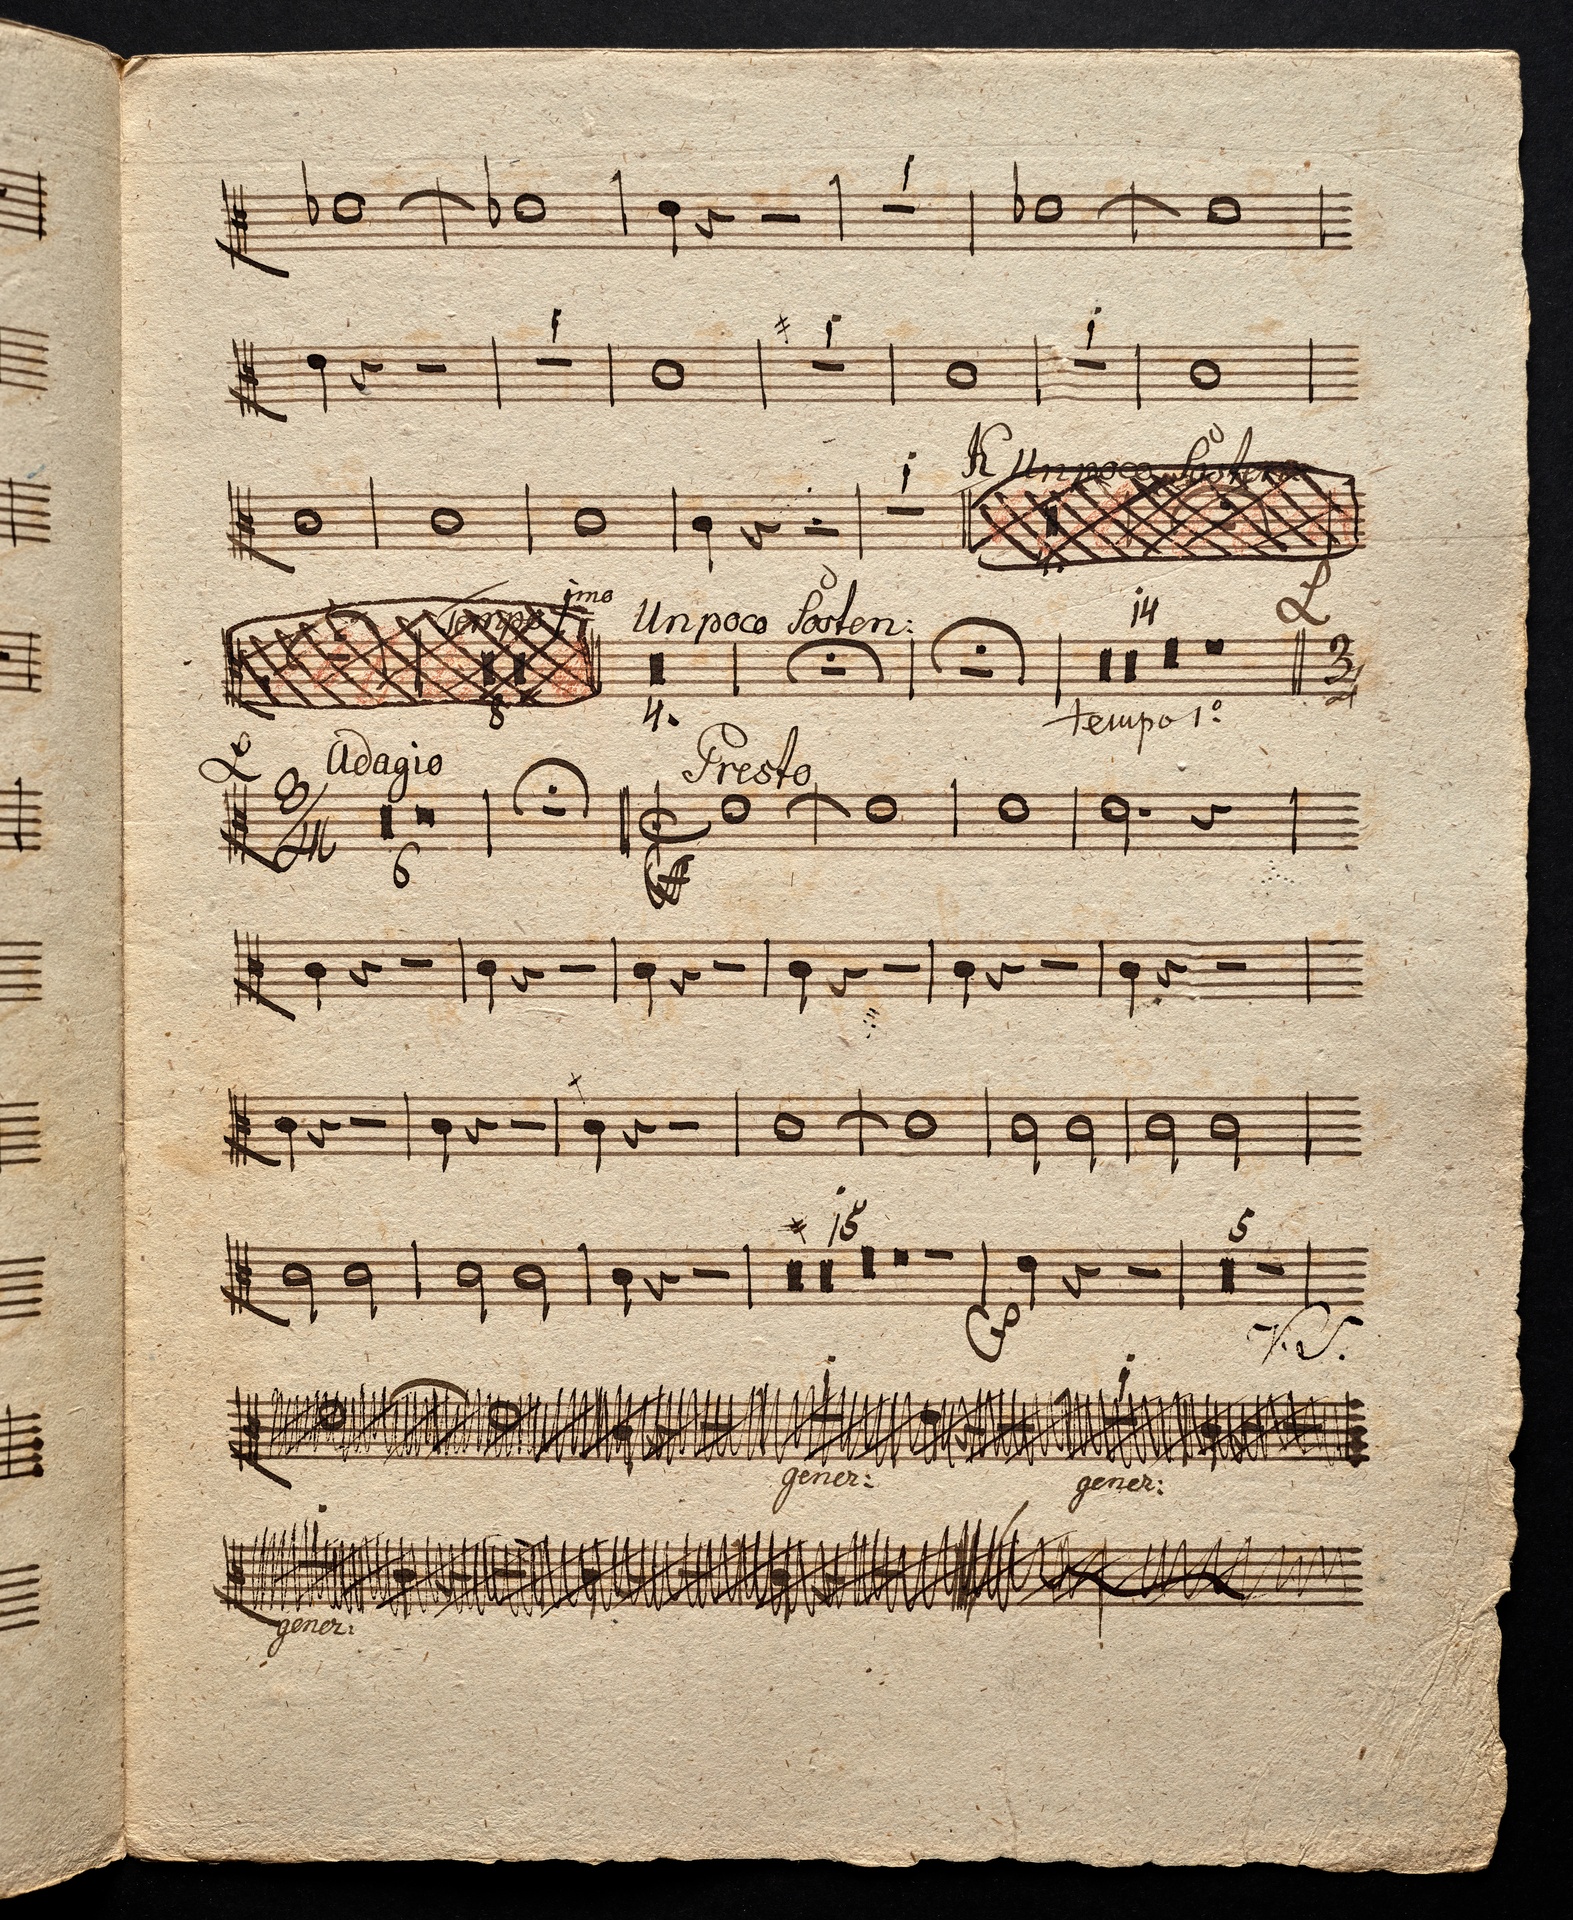 1 
1 1 1
1 K Un poco Sosten
Tempo jmo Un poco Sosten: 14 L
8 4. tempo 1º 3/4
L Adagio Presto
3/4 6
15 5
V. S.
1 1
gener: gener:
gener: